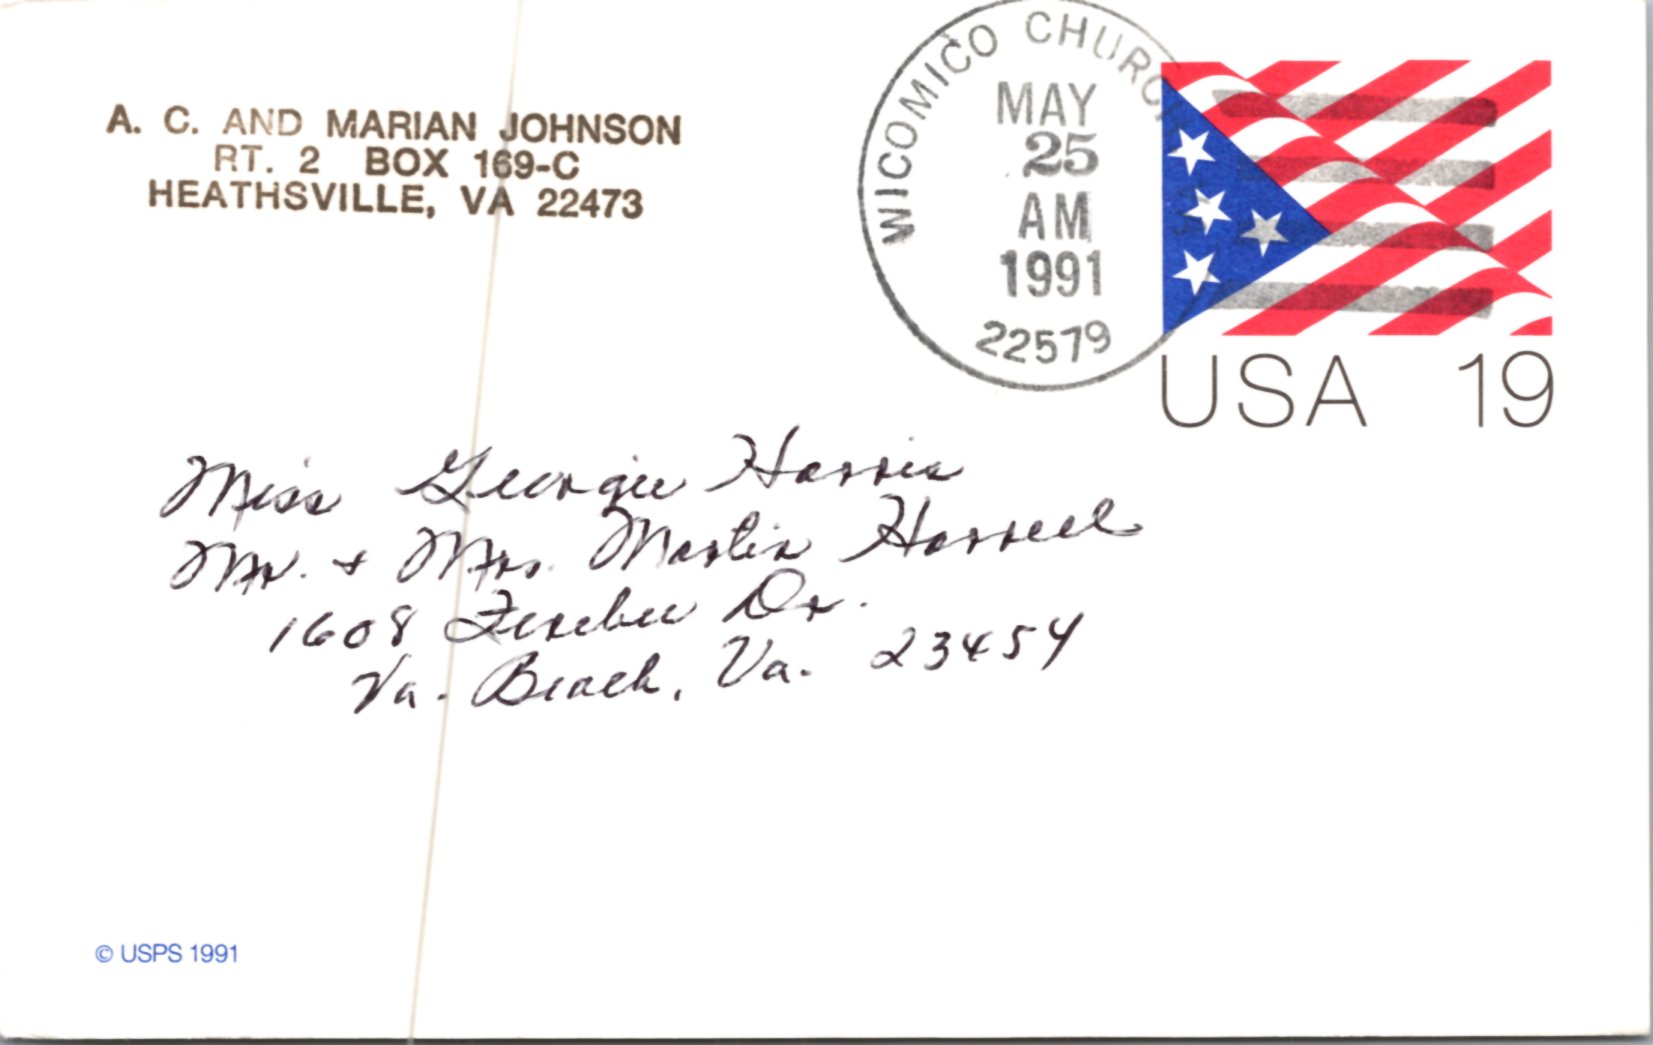 A. C. AND MARIAN JOHNSON
RT. 2 BOX 169-C
HEATHSVILLE, VA 22473
WICOMICO CHURCH
MAY
25
AM
1991
22579
USA 19
Miss Georgie Harris
Mr. & Mrs. Martin Harrell
1608 Ferebee Dr.
Va. Beach, Va. 23454
© USPS 1991